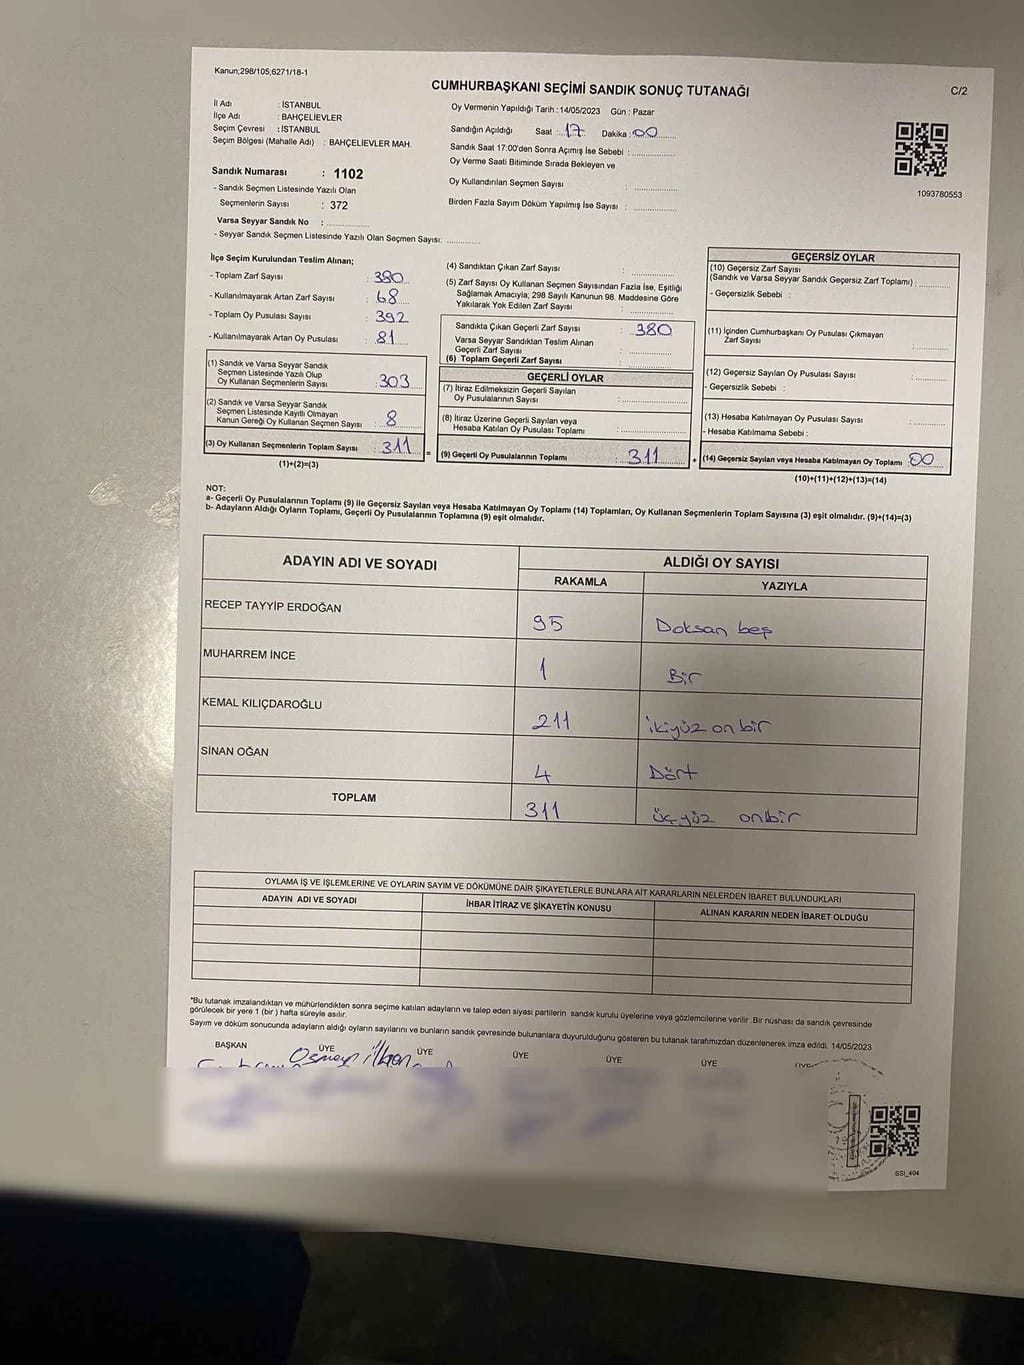 Kanun;298/105;6271/18-1
CUMHURBAŞKANI SEÇİMİ SANDIK SONUÇ TUTANAĞI
C/2
İl Adı : İSTANBUL
İlçe Adı : BAHÇELİEVLER
Seçim Çevresi : İSTANBUL
Seçim Bölgesi (Mahalle Adı) : BAHÇELİEVLER MAH.
Oy Vermenin Yapıldığı Tarih : 14/05/2023 Gün : Pazar
Sandığın Açıldığı Saat : 17 Dakika : 00
Sandık Saat 17:00'den Sonra Açılmış İse Sebebi :
Oy Verme Saati Bitiminde Sırada Bekleyen ve
Oy Kullandırılan Seçmen Sayısı :
Birden Fazla Sayım Döküm Yapılmış İse Sayısı :
1093780553
Sandık Numarası : 1102
- Sandık Seçmen Listesinde Yazılı Olan
Seçmenlerin Sayısı : 372
Varsa Seyyar Sandık No :
- Seyyar Sandık Seçmen Listesinde Yazılı Olan Seçmen Sayısı:
İlçe Seçim Kurulundan Teslim Alınan;
- Toplam Zarf Sayısı : 380
- Kullanılmayarak Artan Zarf Sayısı : 68
- Toplam Oy Pusulası Sayısı : 392
- Kullanılmayarak Artan Oy Pusulası : 81
(1) Sandık ve Varsa Seyyar Sandık
Seçmen Listesinde Yazılı Olup
Oy Kullanan Seçmenlerin Sayısı : 303
(2) Sandık ve Varsa Seyyar Sandık
Seçmen Listesinde Kayıtlı Olmayan
Kanun Gereği Oy Kullanan Seçmen Sayısı : 8
(3) Oy Kullanan Seçmenlerin Toplam Sayısı : 311
(1)+(2)=(3)
(4) Sandıktan Çıkan Zarf Sayısı :
(5) Zarf Sayısı Oy Kullanan Seçmen Sayısından Fazla İse, Eşitliği
Sağlamak Amacıyla; 298 Sayılı Kanunun 98. Maddesine Göre
Yakılarak Yok Edilen Zarf Sayısı :
Sandıkta Çıkan Geçerli Zarf Sayısı : 380
Varsa Seyyar Sandıktan Teslim Alınan
Geçerli Zarf Sayısı :
(6) Toplam Geçerli Zarf Sayısı :
GEÇERLİ OYLAR
(7) İtiraz Edilmeksizin Geçerli Sayılan
Oy Pusulalarının Sayısı :
(8) İtiraz Üzerine Geçerli Sayılan veya
Hesaba Katılan Oy Pusulası Toplamı :
= (9) Geçerli Oy Pusulalarının Toplamı : 311
GEÇERSİZ OYLAR
(10) Geçersiz Zarf Sayısı
(Sandık ve Varsa Seyyar Sandık Geçersiz Zarf Toplamı) :
- Geçersizlik Sebebi :
(11) İçinden Cumhurbaşkanı Oy Pusulası Çıkmayan
Zarf Sayısı :
(12) Geçersiz Sayılan Oy Pusulası Sayısı :
- Geçersizlik Sebebi :
(13) Hesaba Katılmayan Oy Pusulası Sayısı :
- Hesaba Katılmama Sebebi :
+ (14) Geçersiz Sayılan veya Hesaba Katılmayan Oy Toplamı : 00
(10)+(11)+(12)+(13)=(14)
NOT:
a- Geçerli Oy Pusulalarının Toplamı (9) ile Geçersiz Sayılan veya Hesaba Katılmayan Oy Toplamı (14) Toplamları, Oy Kullanan Seçmenlerin Toplam Sayısına (3) eşit olmalıdır. (9)+(14)=(3)
b- Adayların Aldığı Oyların Toplamı, Geçerli Oy Pusulalarının Toplamına (9) eşit olmalıdır.
ADAYIN ADI VE SOYADI
ALDIĞI OY SAYISI
RAKAMLA YAZIYLA
RECEP TAYYİP ERDOĞAN 95 Doksan beş
MUHARREM İNCE 1 Bir
KEMAL KILIÇDAROĞLU 211 ikiyüz on bir
SİNAN OĞAN 4 Dört
TOPLAM 311 üçyüz onbir
OYLAMA İŞ VE İŞLEMLERİNE VE OYLARIN SAYIM VE DÖKÜMÜNE DAİR ŞİKAYETLERLE BUNLARA AİT KARARLARIN NELERDEN İBARET BULUNDUKLARI
ADAYIN ADI VE SOYADI İHBAR İTİRAZ VE ŞİKAYETİN KONUSU ALINAN KARARIN NEDEN İBARET OLDUĞU
*Bu tutanak imzalandıktan ve mühürlendikten sonra seçime katılan adayların ve talep eden siyasi partilerin sandık kurulu üyelerine veya gözlemcilerine verilir .Bir nüshası da sandık çevresinde
görülecek bir yere 1 (bir ) hafta süreyle asılır.
Sayım ve döküm sonucunda adayların aldığı oyların sayılarını ve bunların sandık çevresinde bulunanlara duyurulduğunu gösteren bu tutanak tarafımızdan düzenlenerek imza edildi. 14/05/2023
BAŞKAN ÜYE ÜYE ÜYE ÜYE ÜYE ÜYE
SSİ_404